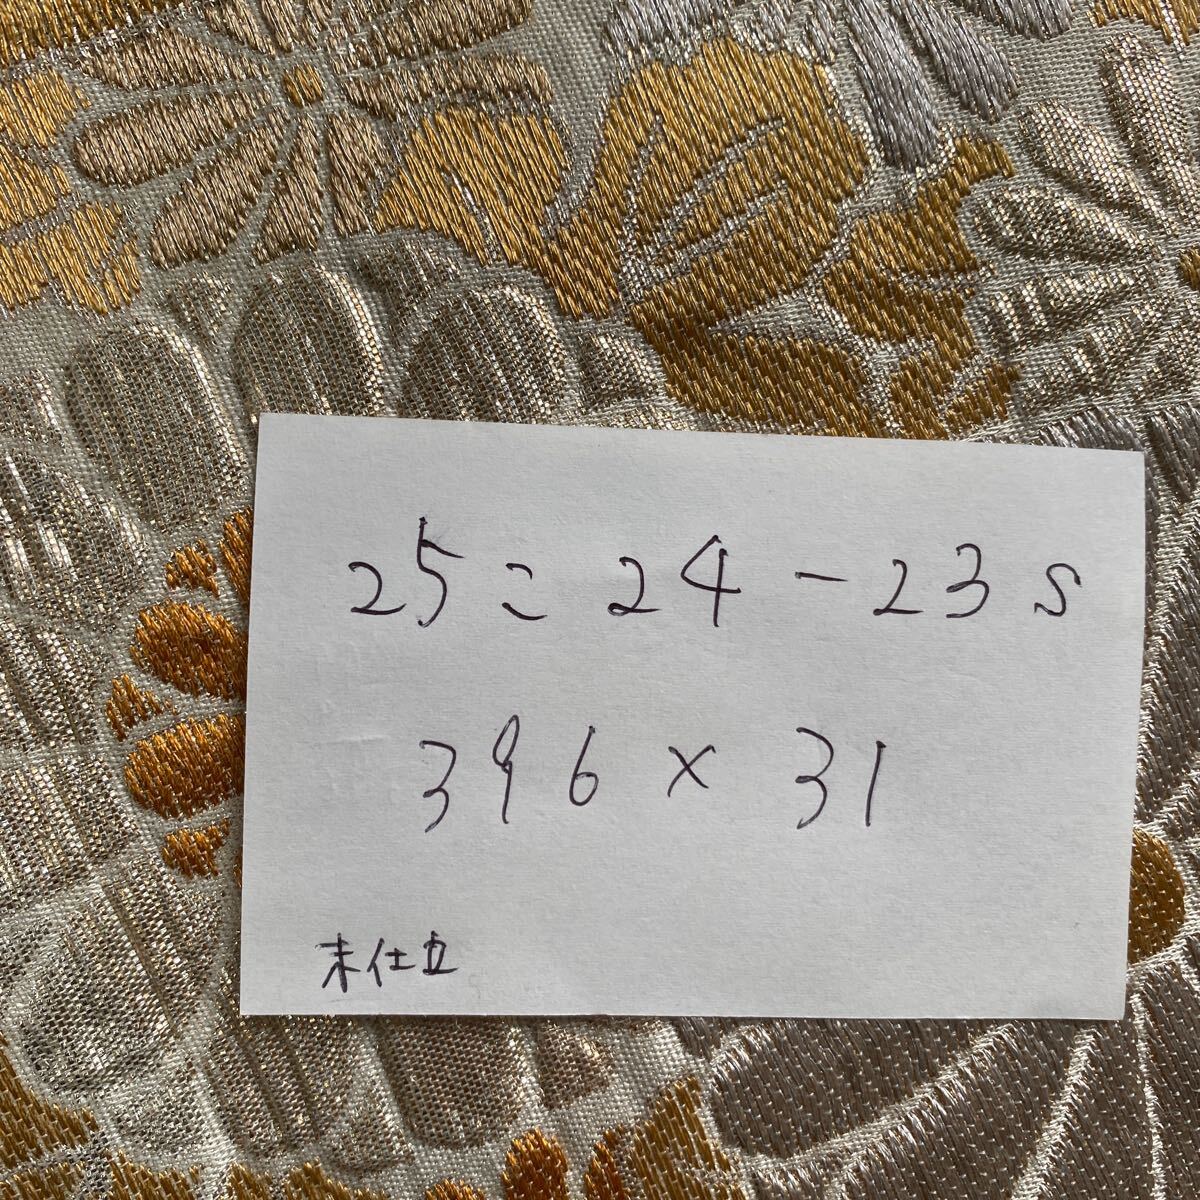 25ニ24-23S
396×31
未仕立